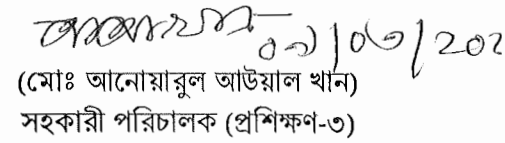 ০৯/০৩/202
(মোঃ আনোয়ারুল আউয়াল খান)
সহকারী পরিচালক (প্রশিক্ষণ-৩)